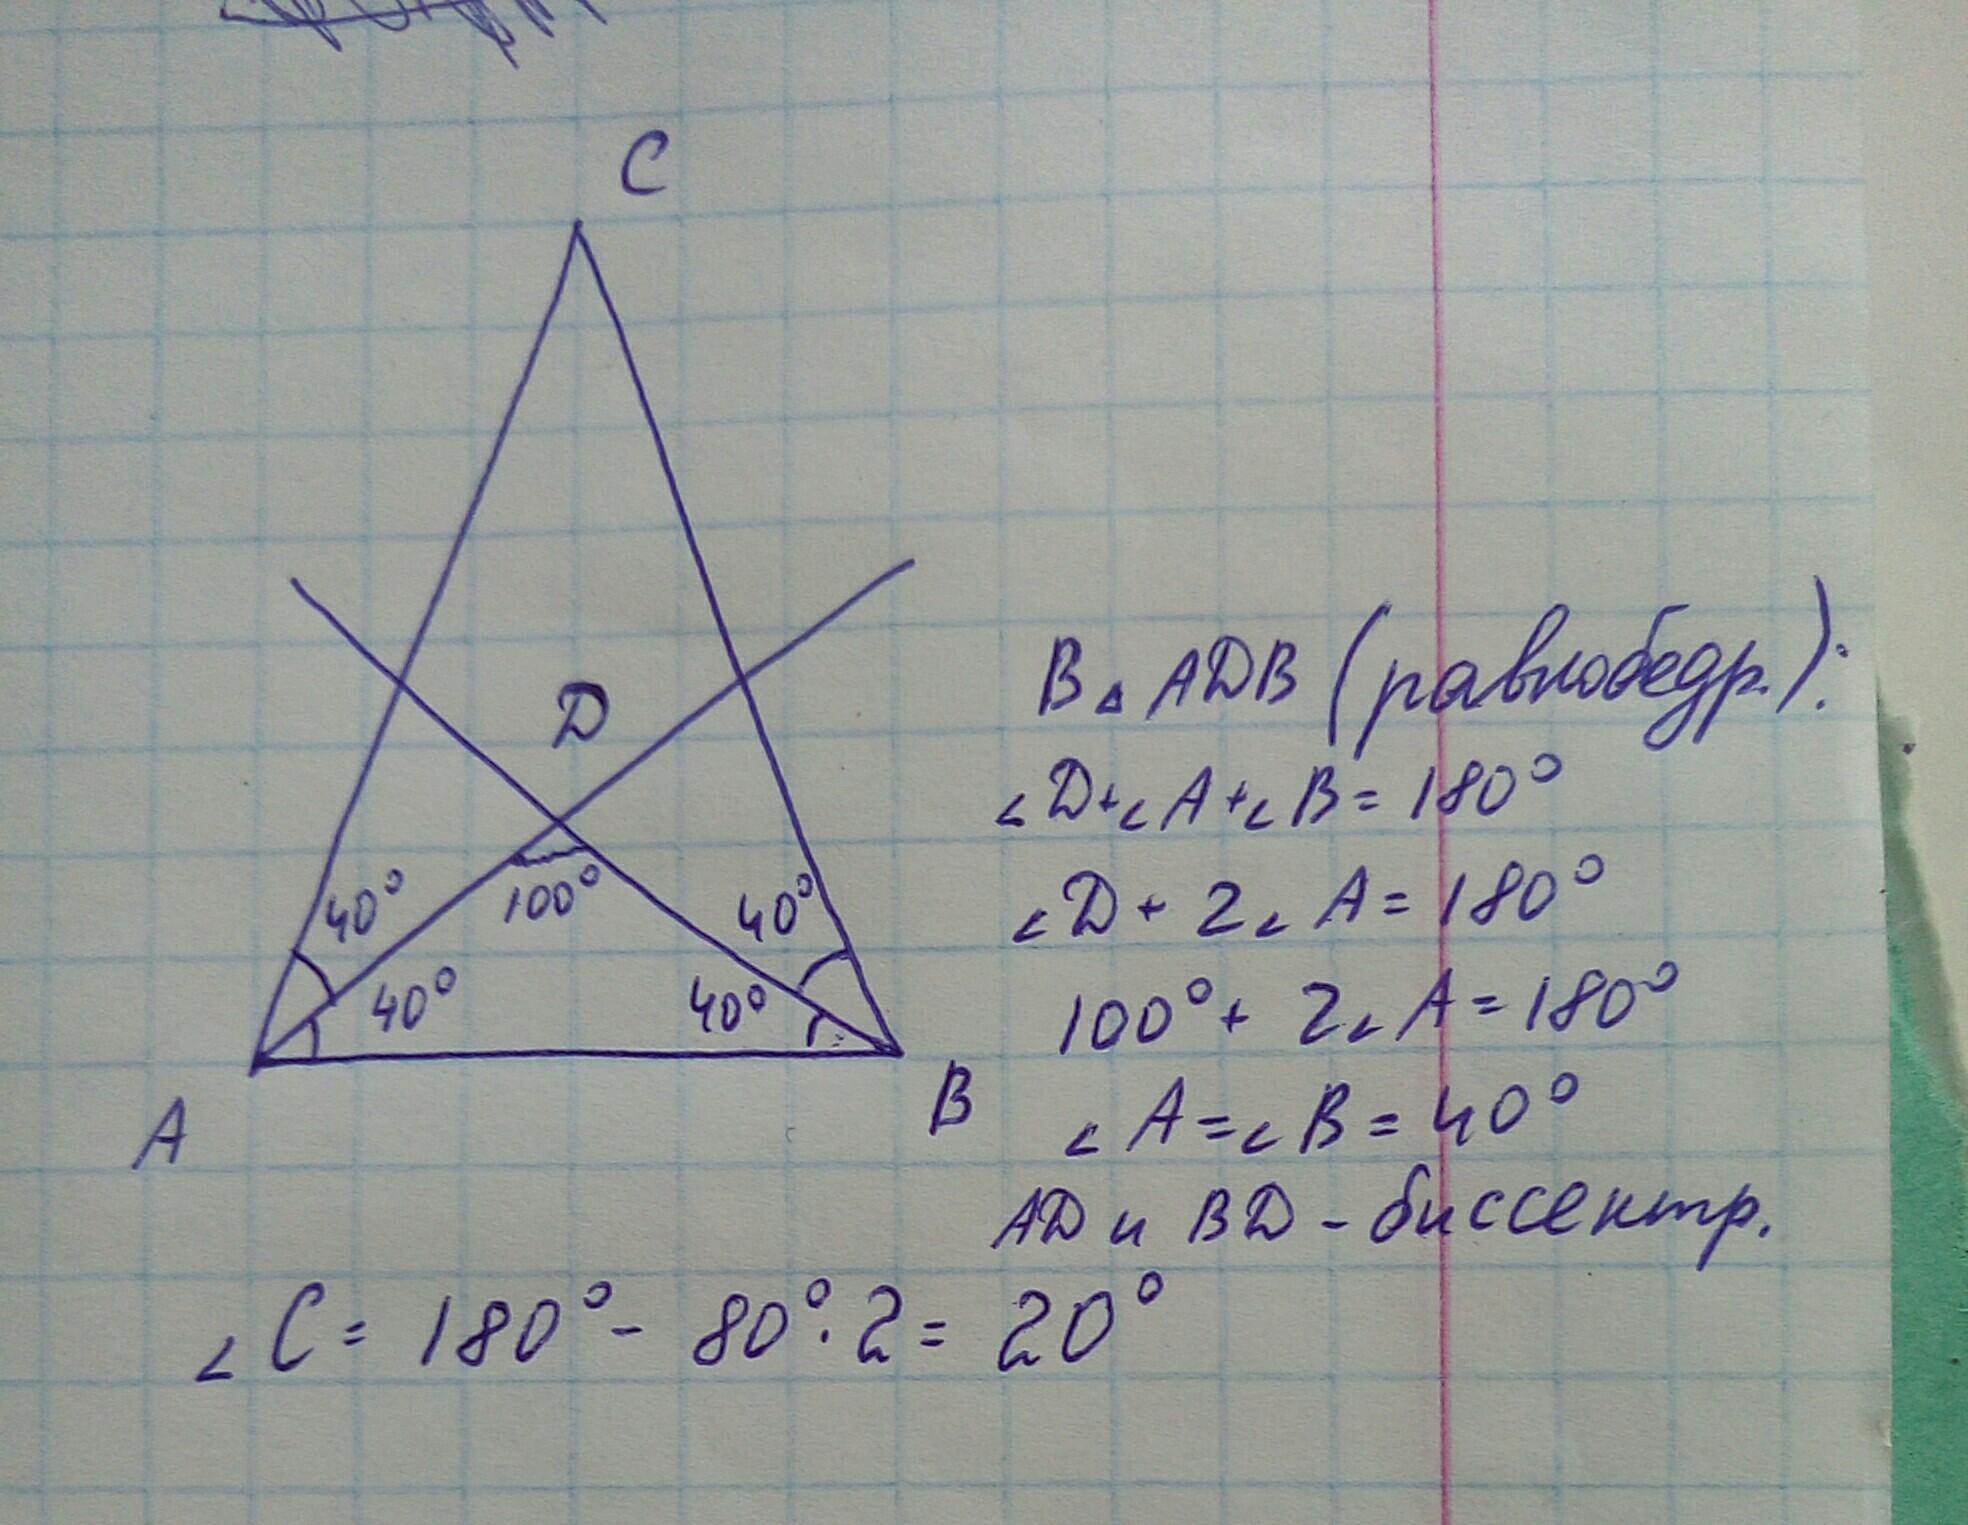 C
D
40°
100°
40°
40°
40°
A
B
В ▵ ADB (равнобедр.):
∠D+∠A+∠B=180°
∠D+2∠A=180°
100°+2∠A=180°
∠A=∠B=40°
AD и BD - биссектр.
∠C=180°-80°·2=20°